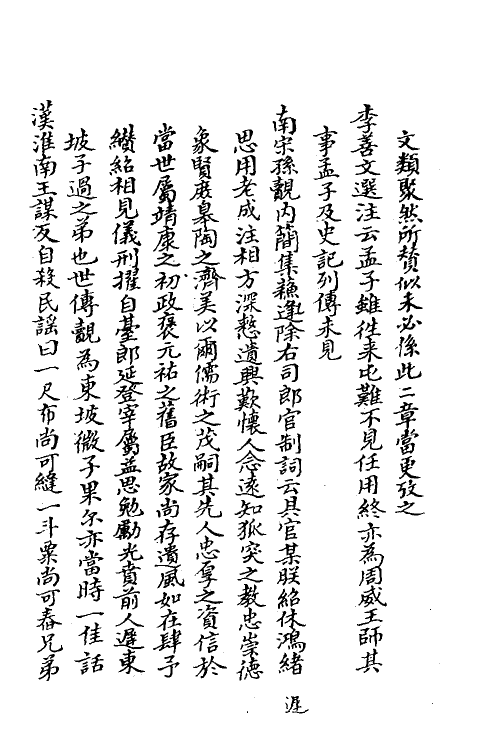 文類聚然所賛似未必係此二章當更攷之
李善文選注云孟子雖往来屯難不見任用終亦為周威王師其
事孟子及史記列傳未見
南宋孫覿内簡集蘓遲除右司郎官制詞云具官某朕紹休鴻緒
思用老成注相方深慭遺興歎懷人念遠知狐突之教忠崇德
象賢庶皋陶之濟美以爾儒術之茂嗣其先人忠厚之資信於
當世屬靖康之初政褒元祐之舊臣故家尚存遺風如在肆予
纉紹相見儀刑擢自臺郎延登宰屬益思勉勵光賁前人遲東
坡子過之弟也世傳覿為東坡微子果尔亦當時一佳話
漢淮南王謀反自殺民謠曰一尺布尚可縫一斗粟尚可舂兄弟
遲